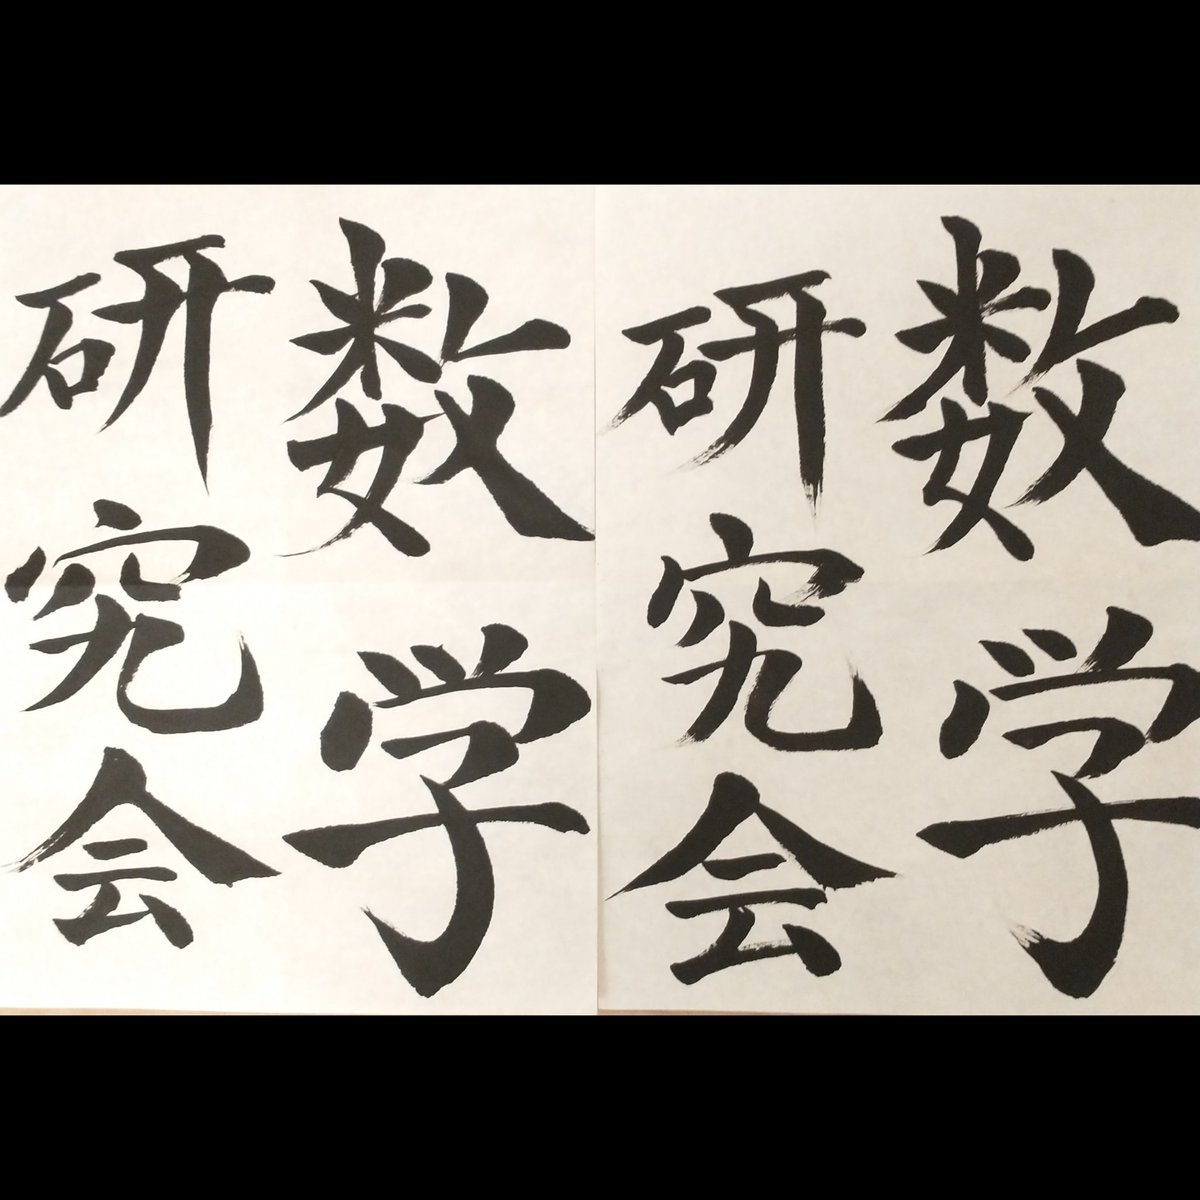 数学
研究会
数学
研究会